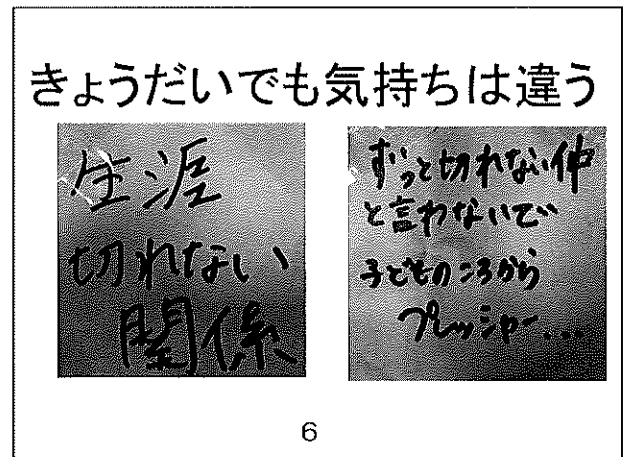 きょうだいでも気持ちは違う
生涯
切れない
関係
ずっと切れない仲
と言わないで
子どものころから
プレッシャー...
6